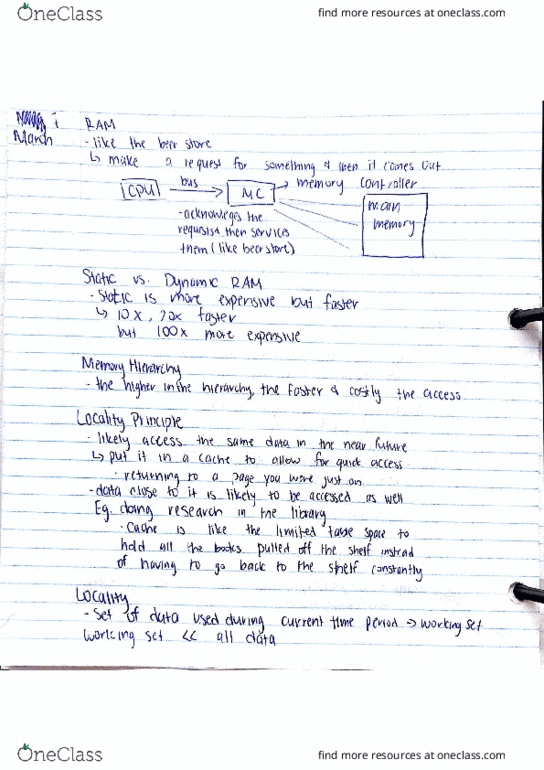 OneClass
find more resources at oneclass.com
RAM
March
- like the beer store
↳ make a request for something & then it comes out
CPU bus → MC → memory controller
main memory
- acknowleges the
requests & then services
them (like beer store)
Static vs. Dynamic RAM
- Static is more expensive but faster
↳ 10x, 20x faster
but 100x more expensive
Memory Hierarchy
- the higher in the hierarchy, the faster & costly the access
Locality Principle
- likely access the same data in the near future
↳ put it in a cache to allow for quick access
- returning to a page you were just on
- data close to it is likely to be accessed as well
Eg. doing research in the library
- Cache is like the limited table space to
hold all the books pulled off the shelf instead
of having to go back to the shelf constantly
Locality
- Set of data used during current time period → working set
working set << all data
OneClass
find more resources at oneclass.com